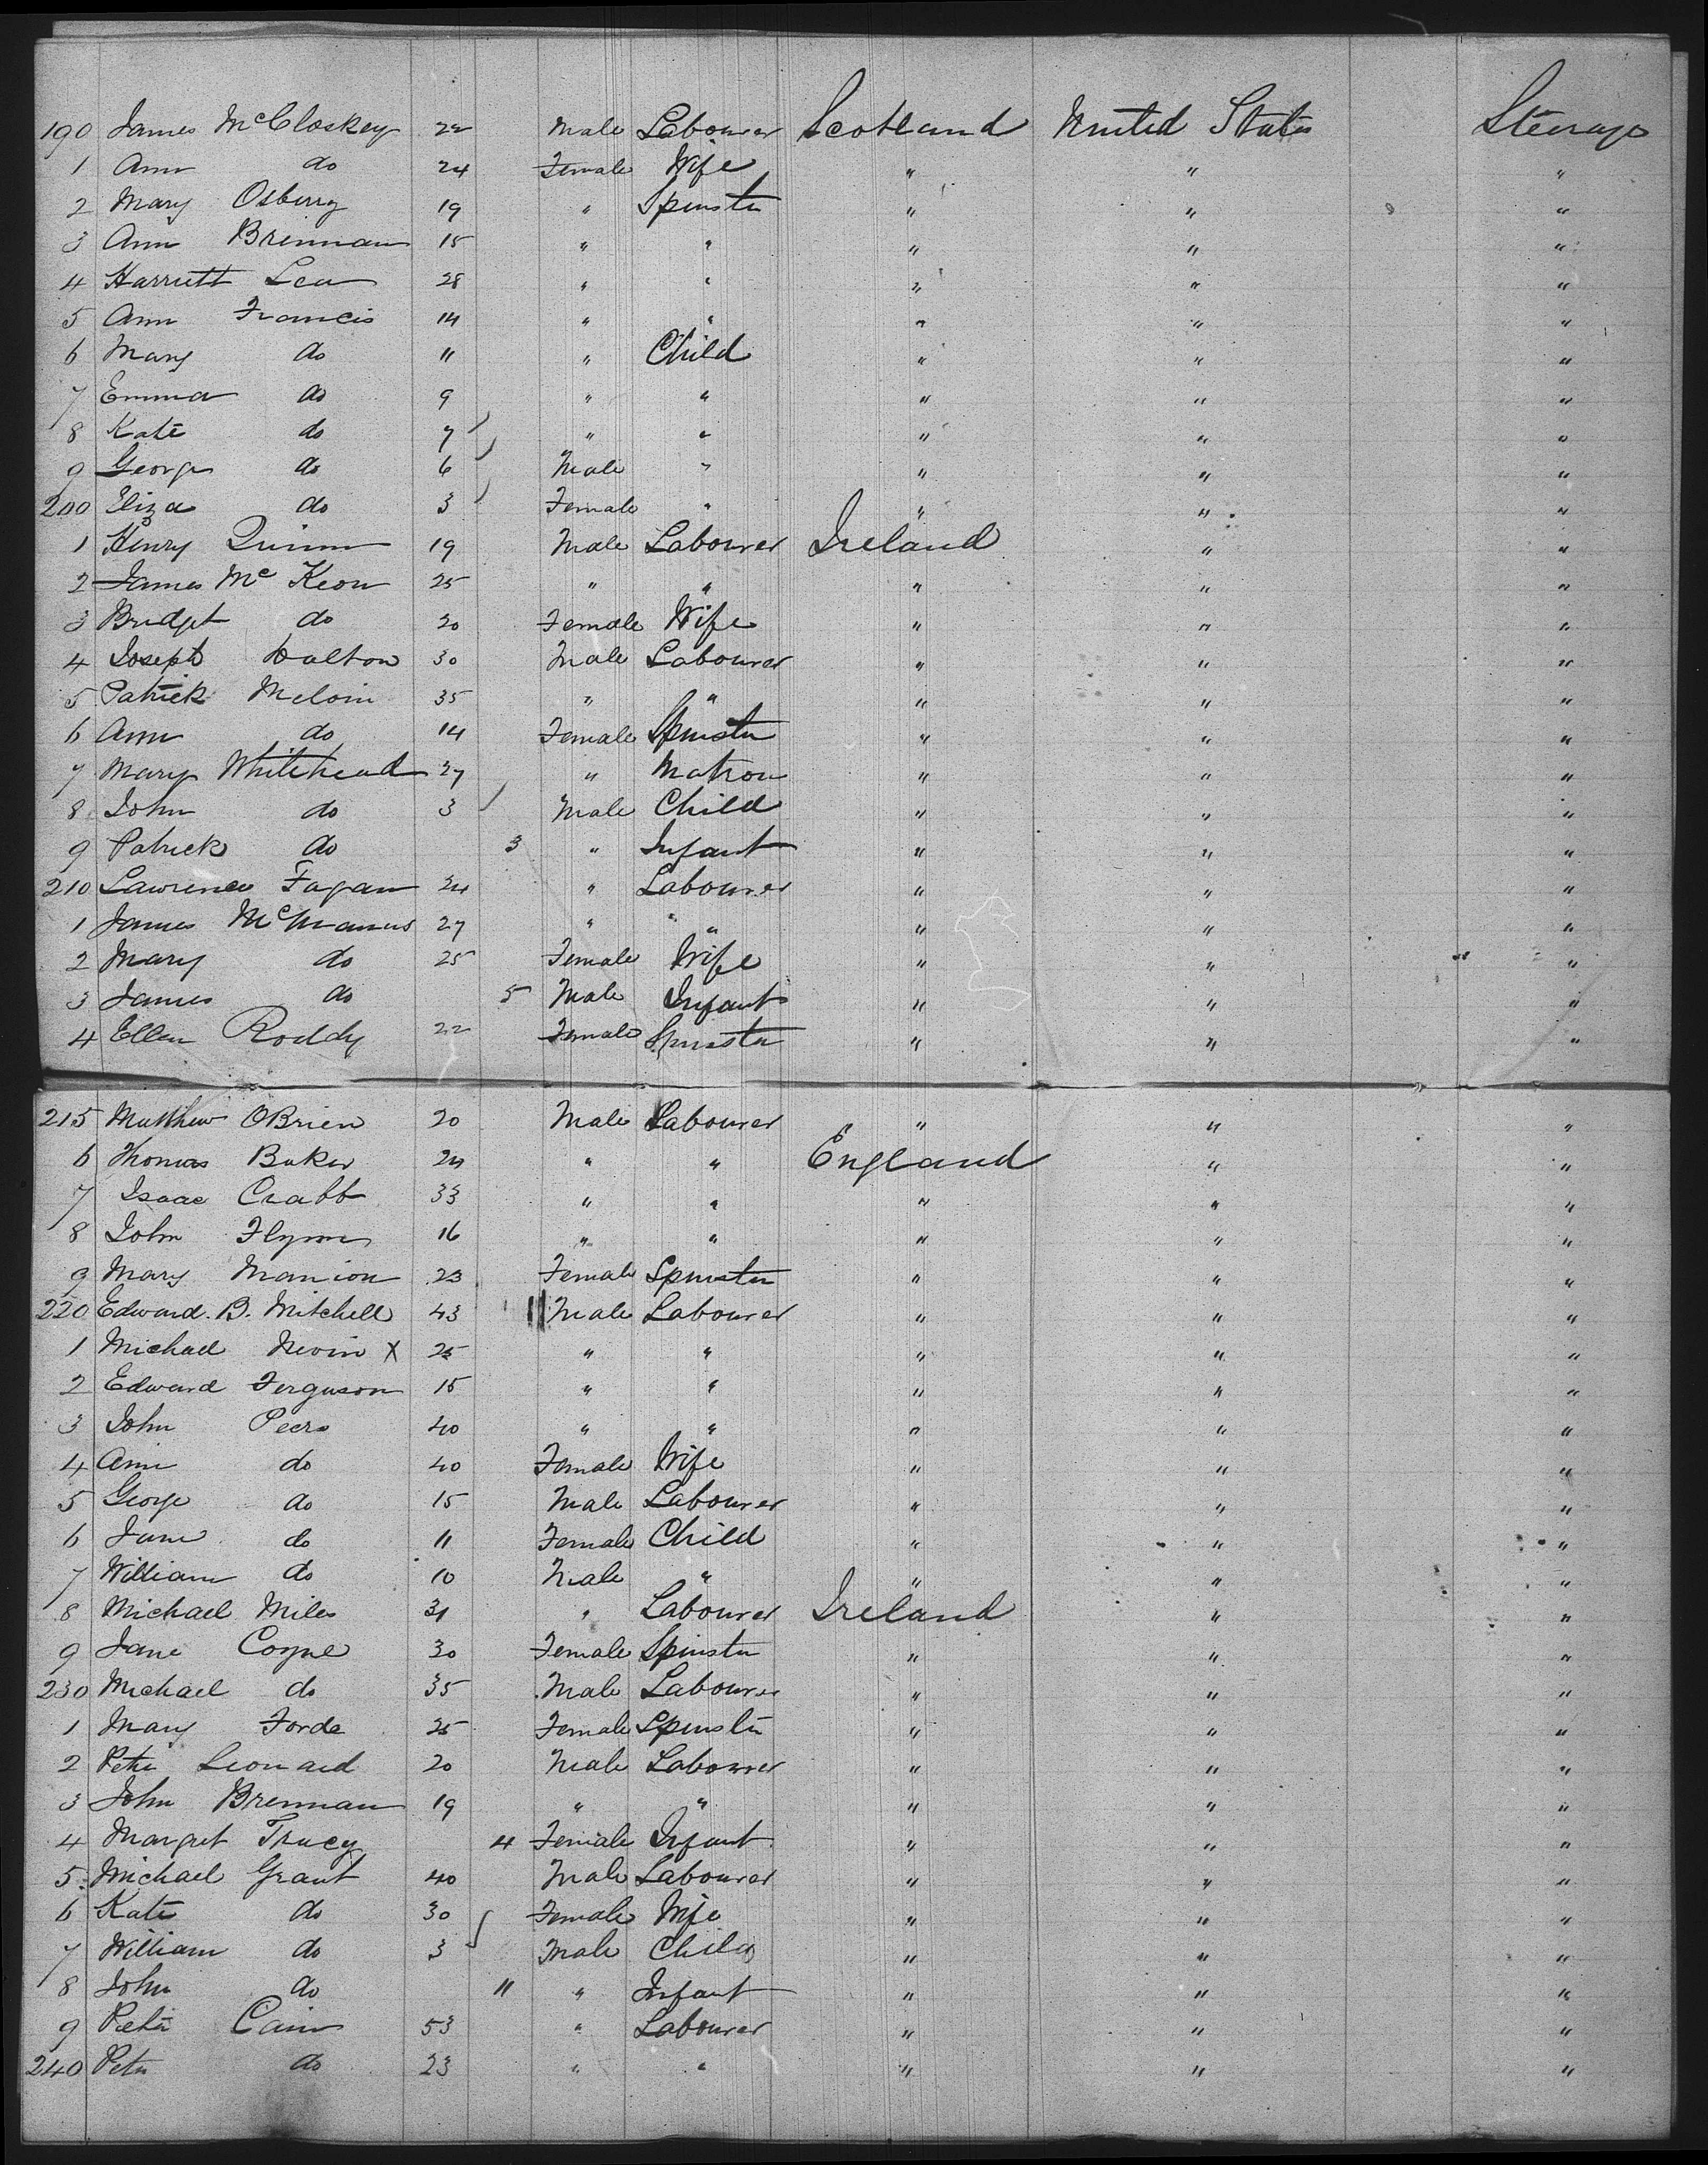 190 James McCloskey 22 Male Labourer Scotland United States Steerage
1 Ann do 24 Female Wife " " "
2 Mary Osberry 19 " Spinster " " "
3 Ann Brennan 15 " " " " "
4 Harriett Lea 28 " " " " "
5 Ann Francis 14 " " " " "
6 Mary do 11 " Child " " "
7 Emma do 9 " " " " "
8 Kate do 7 " " " " "
9 George do 6 Male " " " "
200 Eliza do 3 Female " " " "
1 Henry Quinn 19 Male Labourer Ireland " "
2 James McKeon 25 " " " " "
3 Bridget do 20 Female Wife " " "
4 Joseph Dalton 30 Male Labourer " " "
5 Patrick Meloin 35 " " " " "
6 Ann do 14 Female Spinster " " "
7 Mary Whitehead 27 " Matron " " "
8 John do 3 Male Child " " "
9 Patrick do 3 " Infant " " "
210 Lawrence Fagan 24 " Labourer " " "
1 James McManus 27 " " " " "
2 Mary do 25 Female Wife " " "
3 James do 5 Male Infant " " "
4 Ellen Roddy 22 Female Spinster " " "
215 Matthew OBrien 20 Male Labourer " " "
6 Thomas Baker 24 " " England " "
7 Isaac Crabb 33 " " " " "
8 John Flynn 16 " " " " "
9 Mary Manion 23 Female Spinster " " "
220 Edward. B. Mitchell 43 Male Labourer " " "
1 Michael Nevin X 25 " " " " "
2 Edward Ferguson 15 " " " " "
3 John Peers 40 " " " " "
4 Ann do 40 Female Wife " " "
5 George do 15 Male Labourer " " "
6 Jane do 11 Female Child " " "
7 William do 10 Male " " " "
8 Michael Miles 31 " Labourer Ireland " "
9 Jane Coyne 30 Female Spinster " " "
230 Michael do 35 Male Labourer " " "
1 Mary Forde 25 Female Spinster " " "
2 Peter Leonard 20 Male Labourer " " "
3 John Brennan 19 " " " " "
4 Margret Tracy 4 Female Infant " " "
5 Michael Grant 40 Male Labourer " " "
6 Kate do 30 Female Wife " " "
7 William do 3 Male Child " " "
8 John do 11 " Infant " " "
9 Peter Cain 53 " Labourer " " "
240 Peter do 23 " " " " "